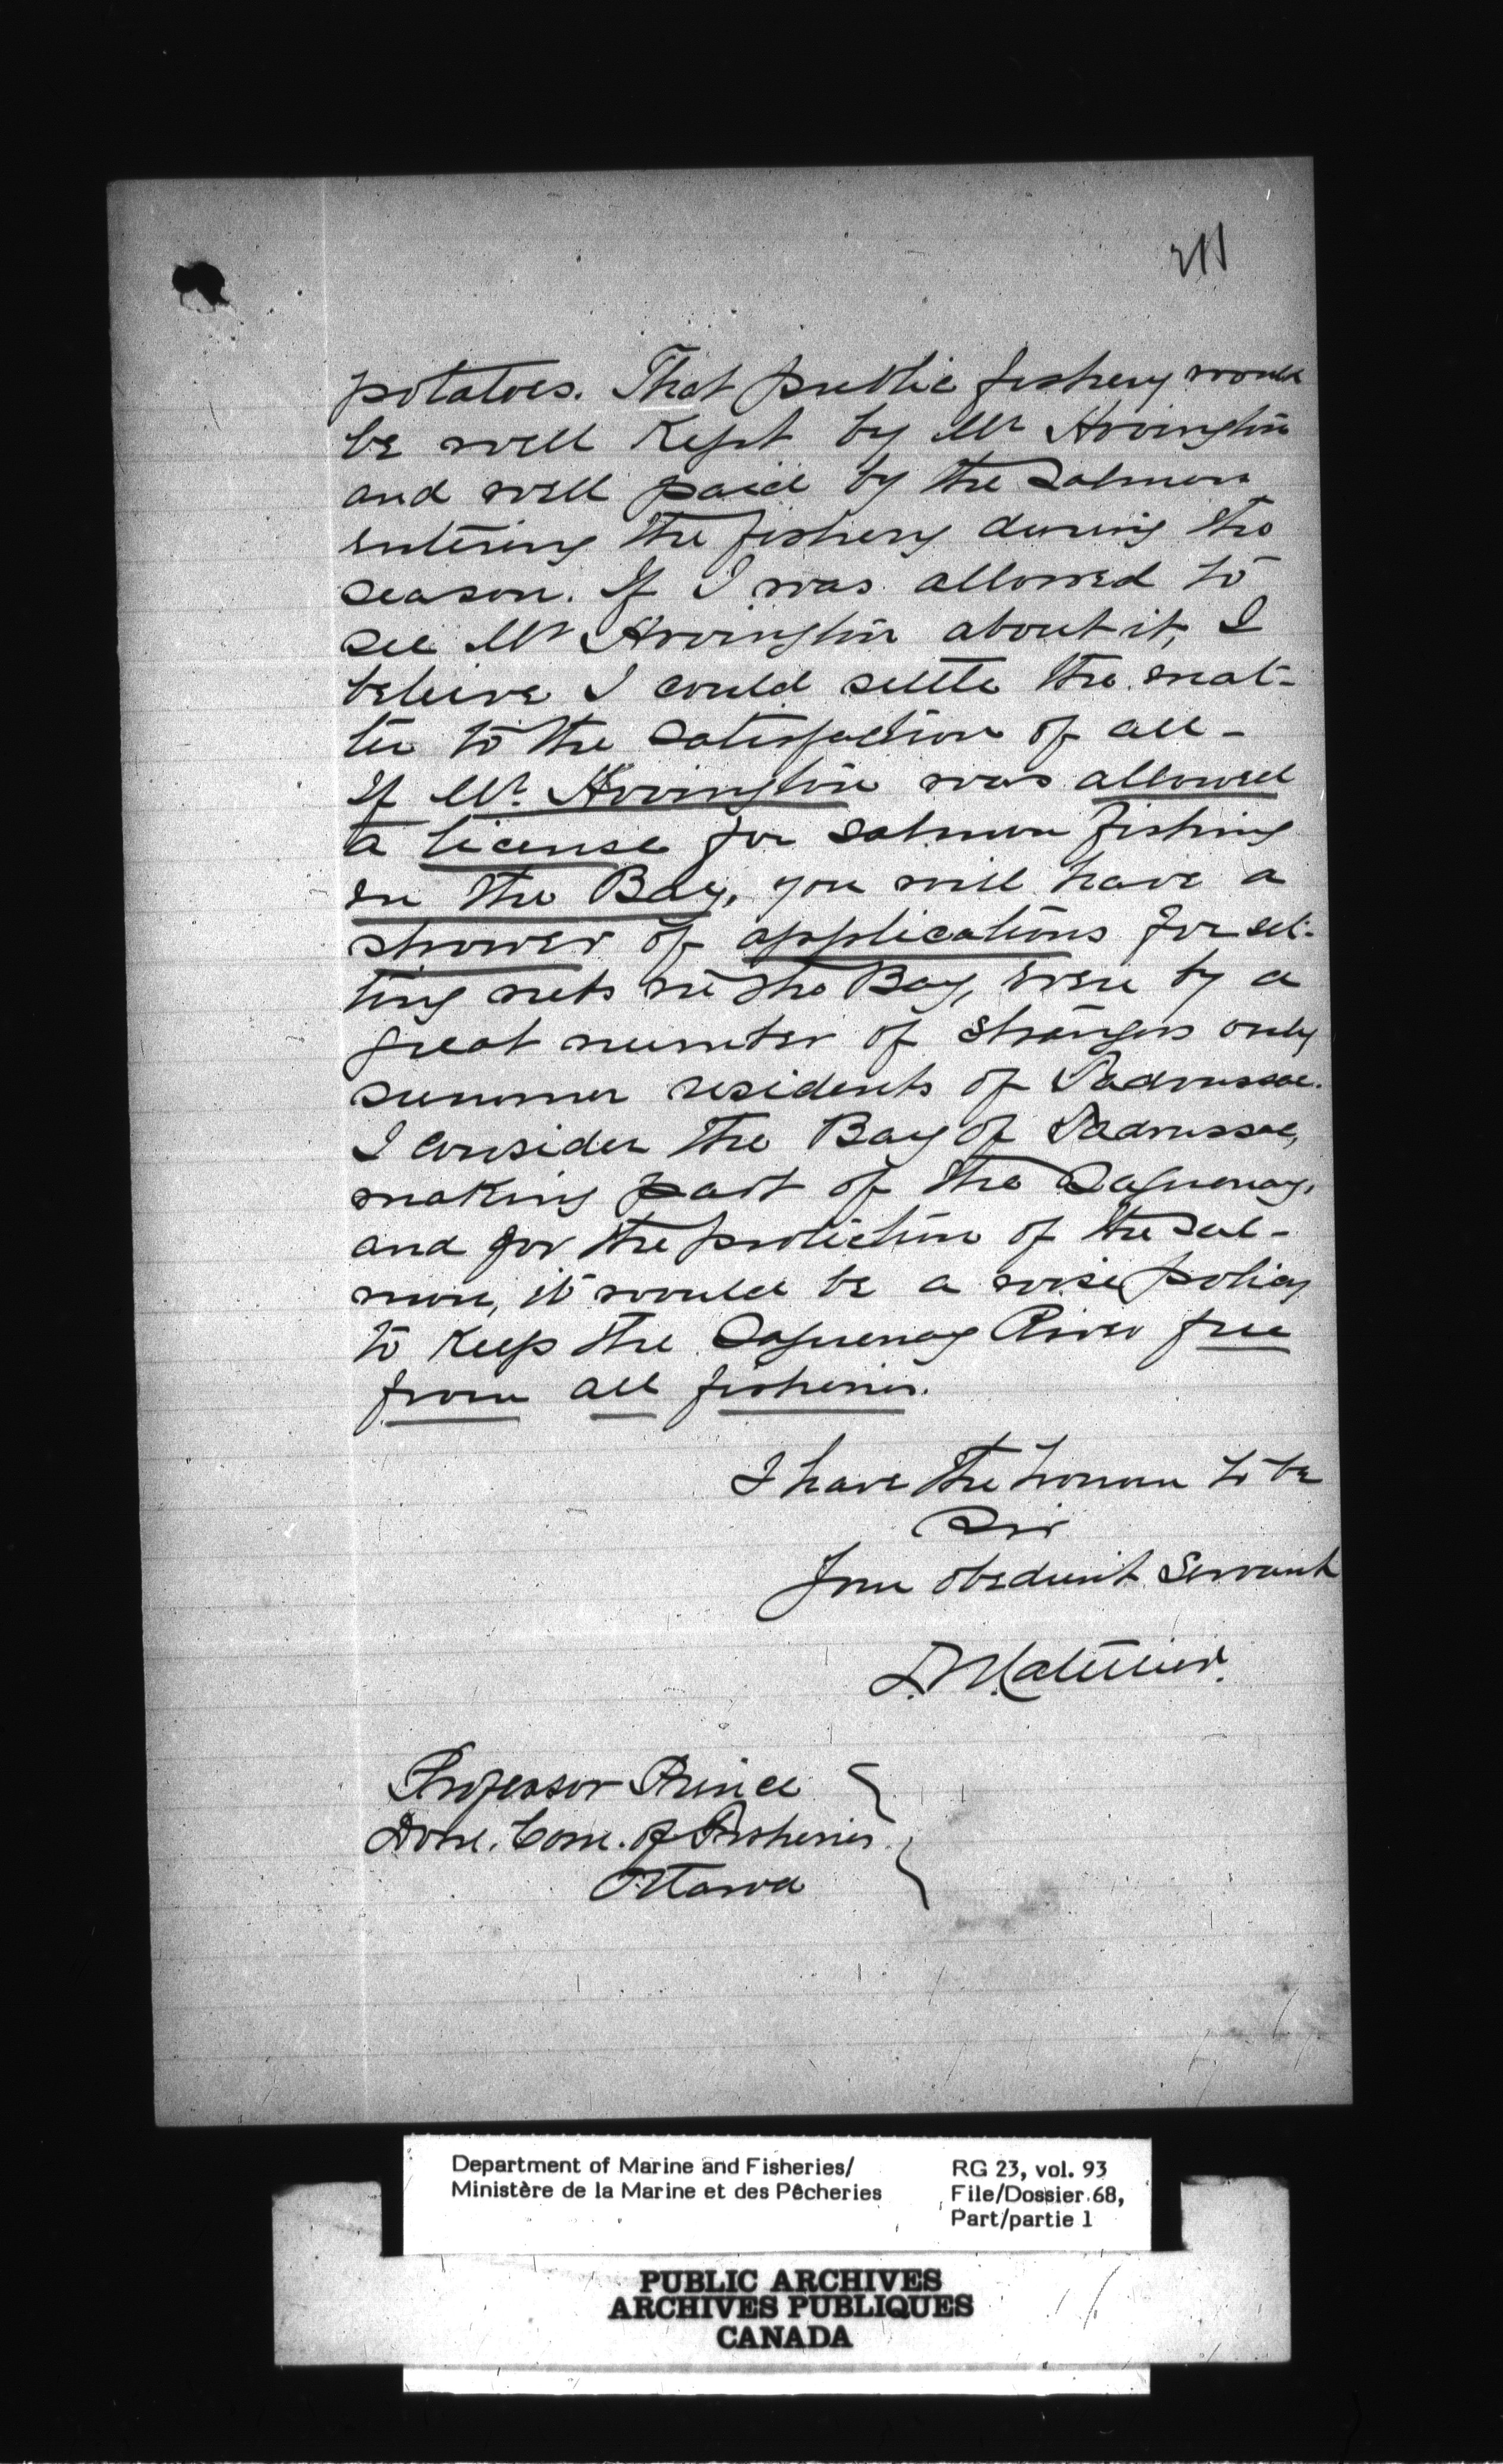 211
potatoes. That public fishery would
be well kept by Mr Hovington
and well paid by the salmon
entering the fishery during the
season. If I was allowed to
see Mr Hovington about it, I
beleive I could settle the mat-
ter to the satisfaction of all -
If Mr. Hovington was allowed
a license for salmon fishing
in the Bay, you will have a
shower of applications for set-
ting nets in the Bay, even by a
great number of strangers only
summer residents of Tadoussac.
I consider the Bay of Tadoussac,
making part of the Saguenay,
and for the protection of the sal-
mon, it would be a wise policy
to keep the Saguenay River free
from all fisheries.
I have the honour to be
Sir
Your obedient Servant
Professor Prince
Dom. Com. of Fisheries
Ottawa
Department of Marine and Fisheries/
Ministère de la Marine et des Pêcheries
RG 23, vol. 93
File/Dossier 68,
Part/partie 1
PUBLIC ARCHIVES
ARCHIVES PUBLIQUES
CANADA